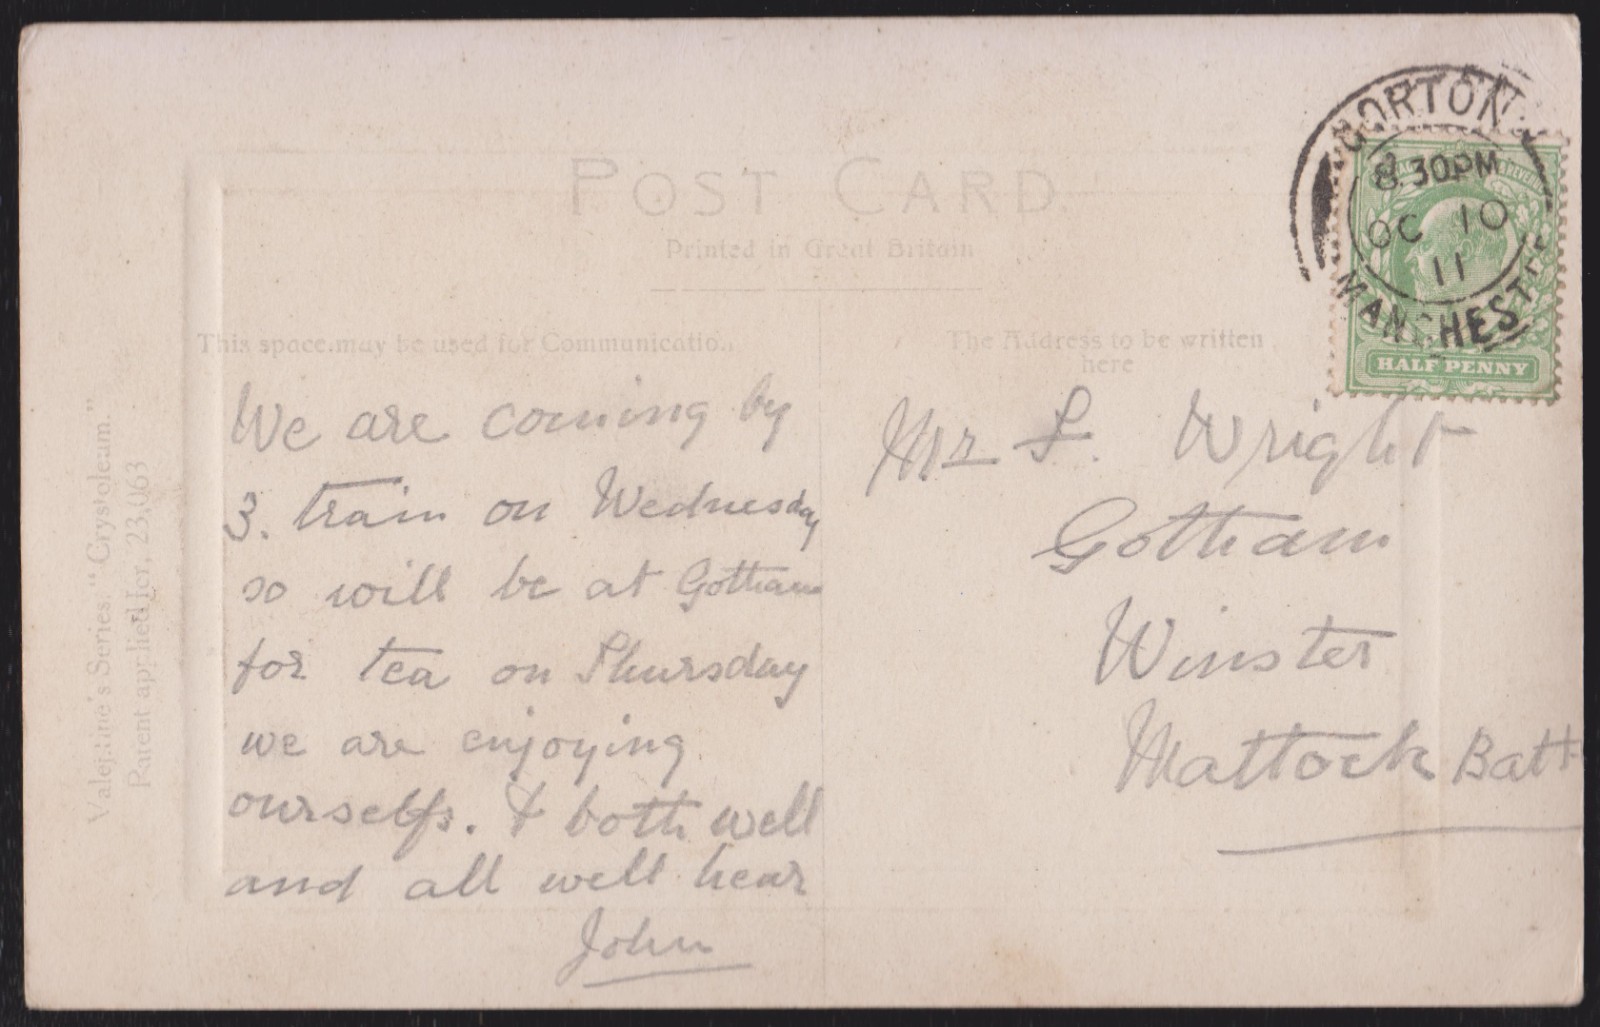 POST CARD
Printed in Great Britain
This space may be used for Communication.
The Address to be written
here
Valentine's Series. "Crystoleum."
Patent applied for, 23,063
GORTON
8.30PM
OC 10
11
MANCHESTE
HALF PENNY
We are coming by
3. train on Wednesday
so will be at Gotham
for tea on Thursday
we are enjoying
ourselfs. & both well
and all well hear
John
Mr
Wright
Gotham
Winster
Mattock Bath